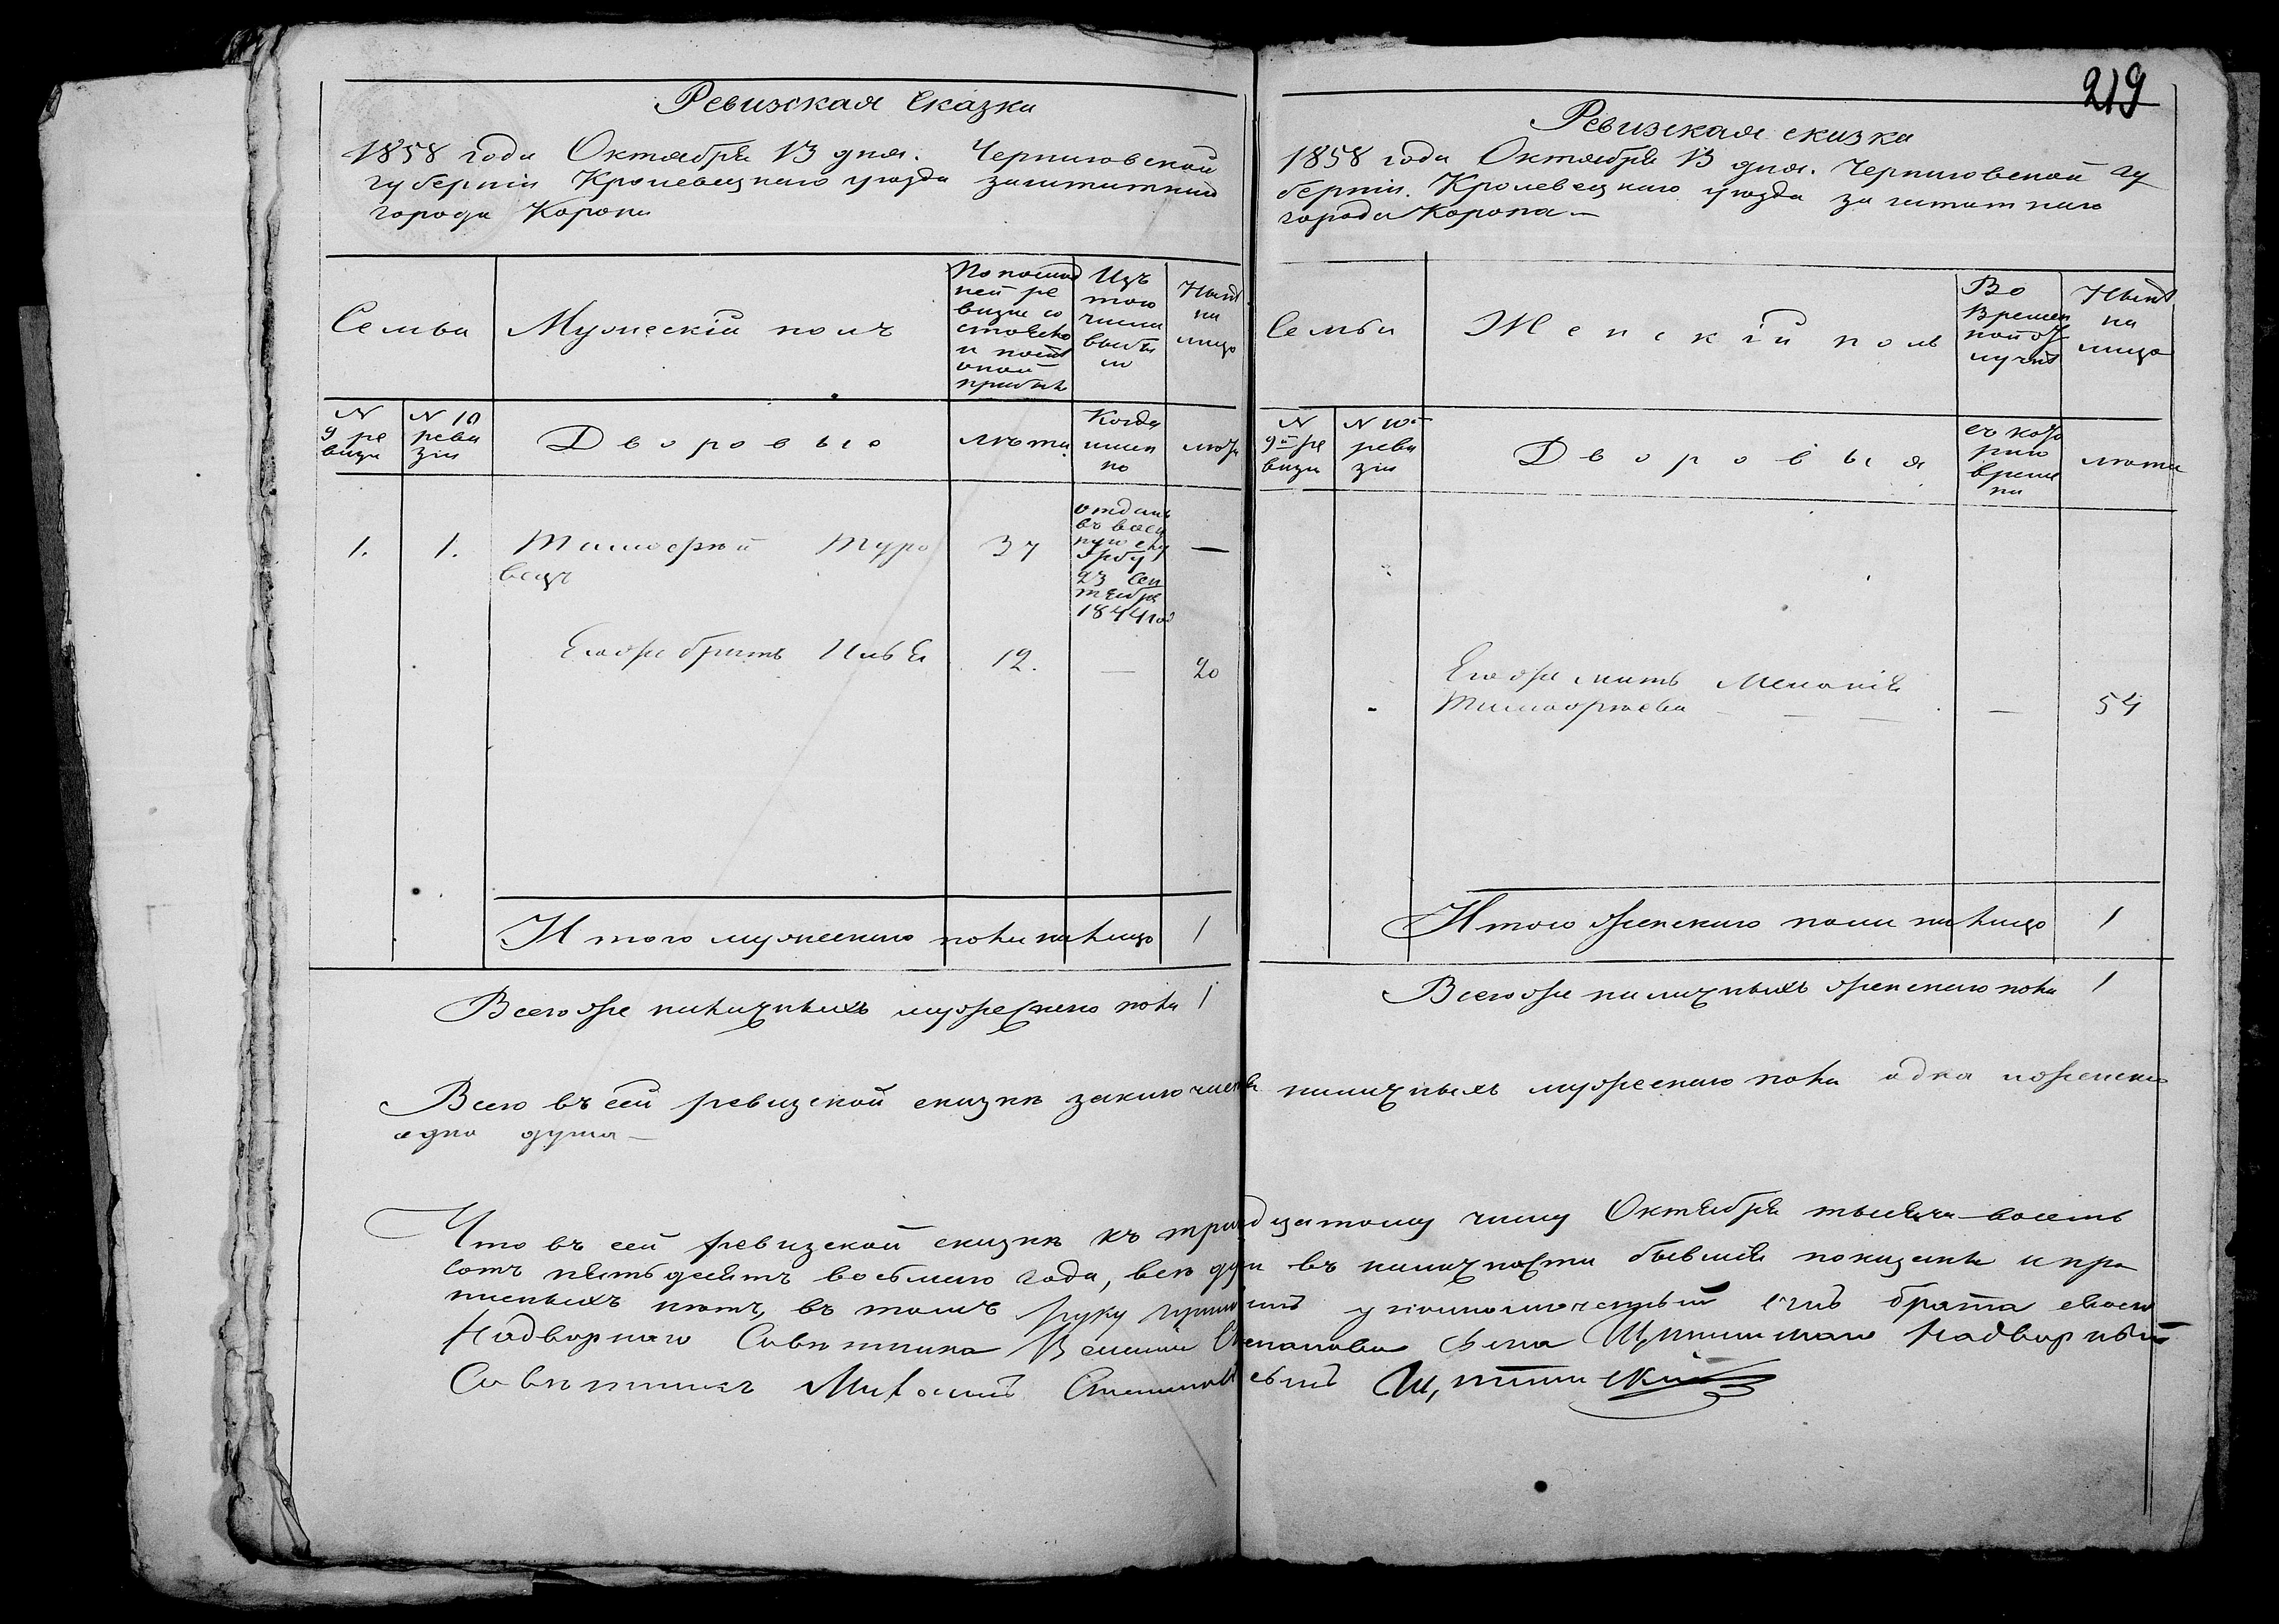 219
Ревизская Сказка
1858 года Октября 13 дня. Черниговской
губернии Кролевецкаго уезда заштатнаго
города Коропа
Семьи
Мужескій полъ
По послед
ней ре
визіи со
стояло
и после
оной
прибыло
Изъ
того
числа
выбы
ло
Ныне
на
лицо
N
9 ре
визіи
N 10
реви
зіи
Дворовые
лета.
Когда
имен
но
лета
1.
1.
Тимофей Туро
вецъ
37
отданъ
въ воен
ную слу
жбу
23 Сен
тября
1844 год
—
Его же братъ Илья
12.
—
20
Итого мужескаго пола на лицо
1
Всего же наличныхъ мужескаго пола 1
Ревизская сказка
1858 года Октября 13 дня. Черниговской гу
берніи. Кролевецкаго уезда заштатнаго
города Коропа —
Семьи
Женскій полъ
Во
времен
ной от
лучке
Ныне
на
лицо
N
9й ре
визіи
N 10й
реви
зіи
Дворовыя
съ кото
раго
време
ни
лета
Его же мать Меланія
Тимофеева — — —
—
54
Итого женскаго пола на лицо
1
Всего же наличныхъ женскаго пола 1
Всего въ сей ревизской сказке заключается наличныхъ мужескаго пола одна и женскаго
одна душа —
Что въ сей ревизской сказке къ тринадцатому числу Октября тысяча восемь
сотъ пятьдесятъ восьмаго года, все души въ наличности бывшія показаны и про
писныхъ нетъ, въ томъ руку уполномоченный отъ брата своего
Надворнаго Советника Степанова сына Надворный
Советникъ сынъ